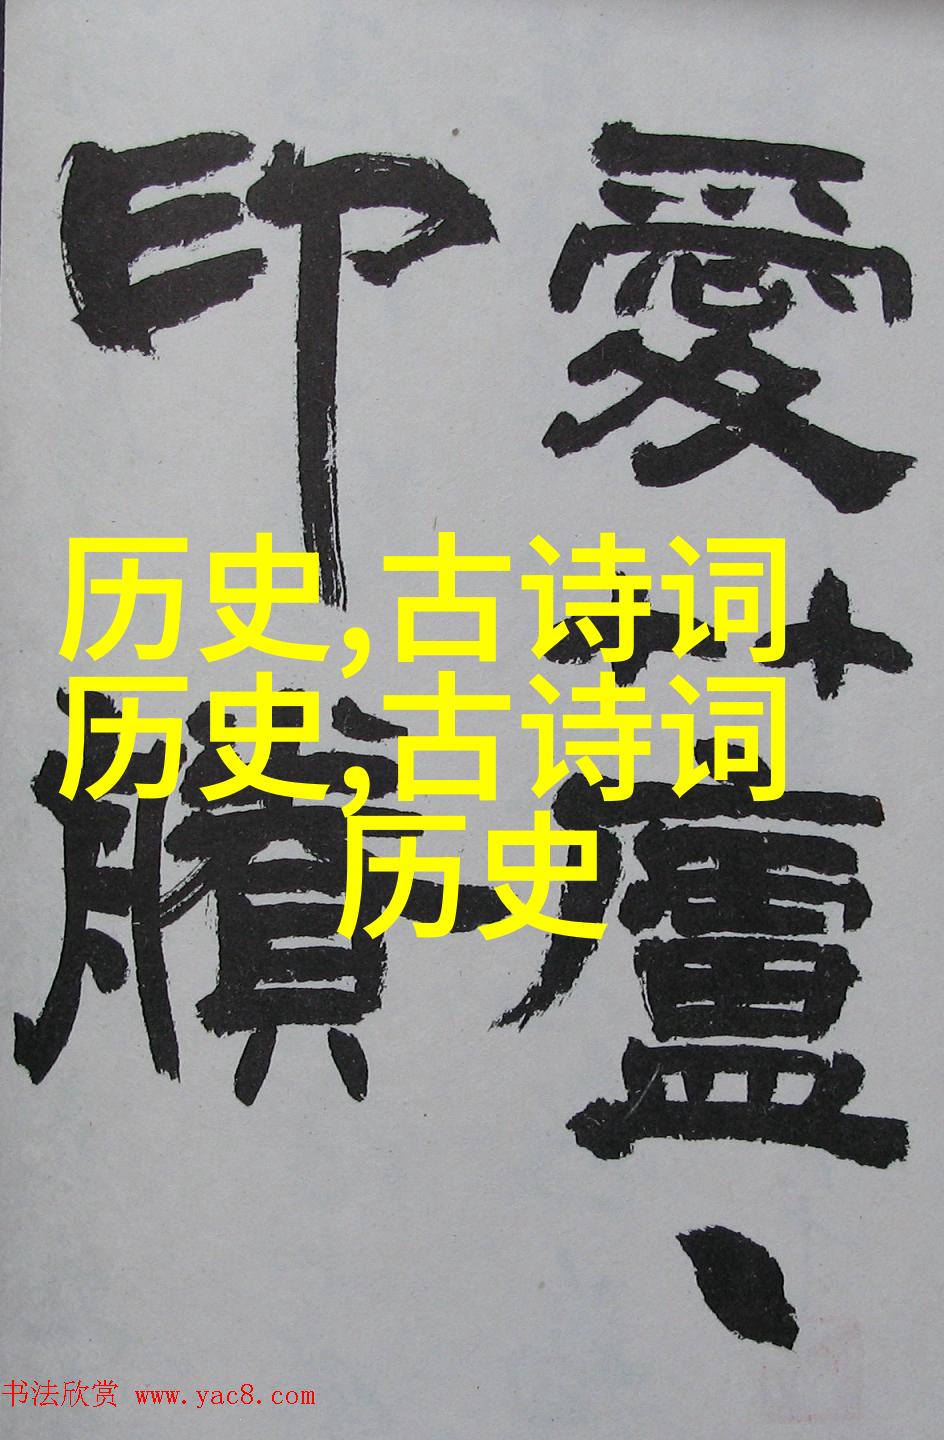 愛蘆、
印
历史,古诗词
历史,古诗词
历史
书法欣赏 www.yac8.com